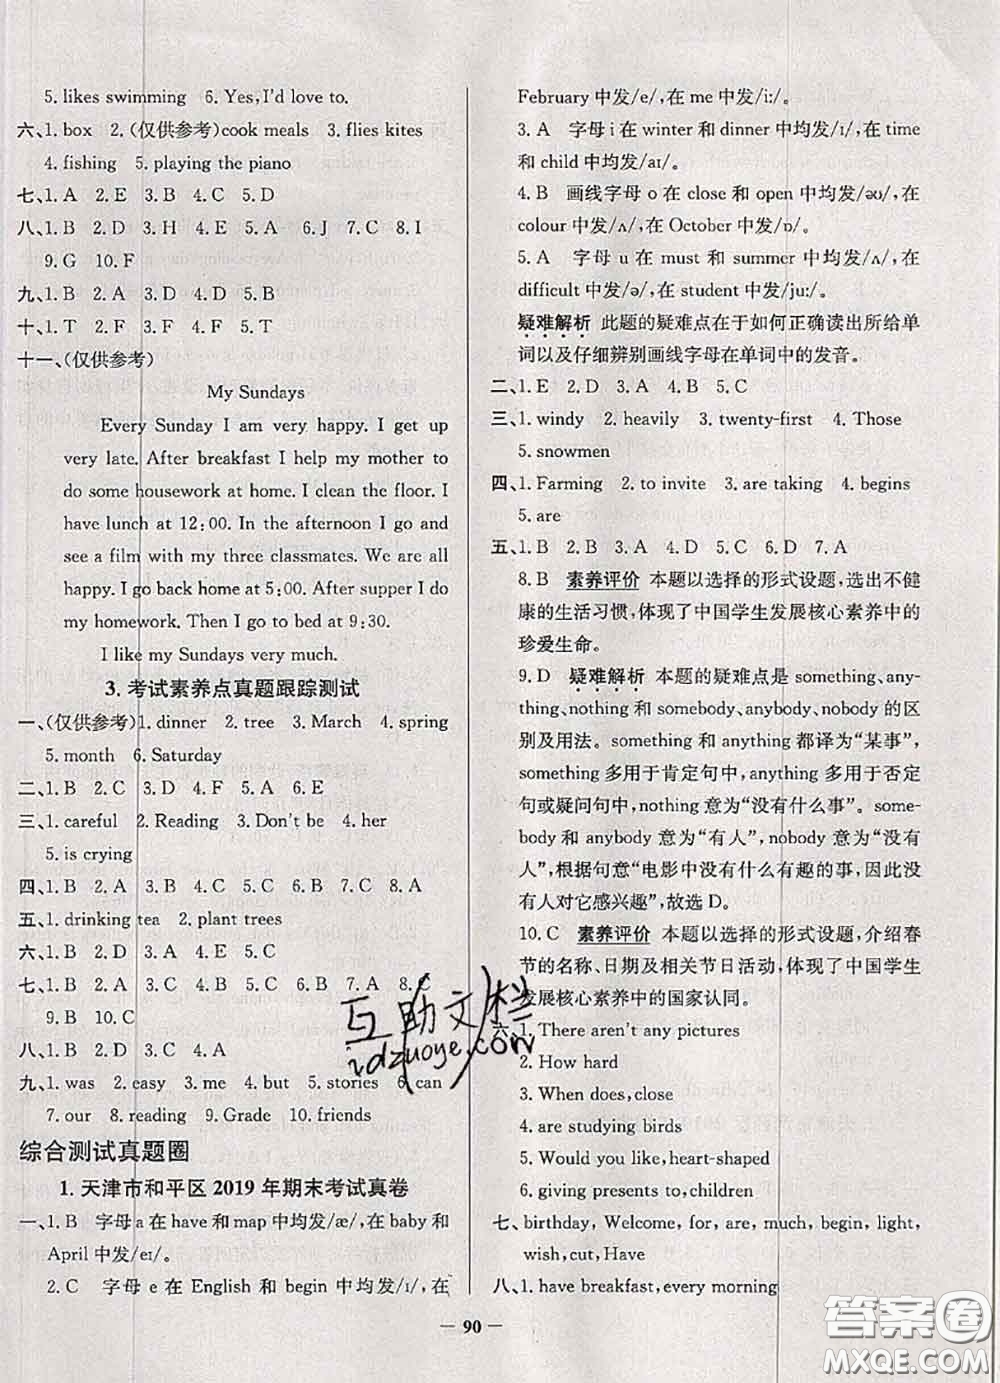 5. likes swimming 6. Yes, I'd love to.
六、1. box 2. (仅供参考)cook meals 3. flies kites
4. fishing 5. playing the piano
七、1. A 2. E 3. B 4. C 5. D
八、1. B 2. D 3. H 4. E 5. A 6. J 7. C 8. I
9. G 10. F
九、1. B 2. B 3. A 4. D 5. B
十、1. T 2. F 3. F 4. F 5. T
十一、(仅供参考)
My Sundays
Every Sunday I am very happy. I get up
very late. After breakfast I help my mother to
do some housework at home. I clean the floor. I
have lunch at 12:00. In the afternoon I go and
see a film with my three classmates. We are all
happy. I go back home at 5:00. After supper I do
my homework. Then I go to bed at 9:30.
I like my Sundays very much.
3. 考试素养点真题跟踪测试
一、(仅供参考)1. dinner 2. tree 3. March 4. spring
5. month 6. Saturday
二、1. B 2. C 3. D 4. F 5. A 6. E
三、1. careful 2. Reading 3. Don't be 4. her
5. is crying
四、1. B 2. A 3. B 4. C 5. B 6. B 7. C 8. A
五、1. drinking tea 2. plant trees
六、1. B 2. D 3. A 4. E 5. C
七、1. B 2. A 3. C 4. B 5. D 6. B 7. A 8. C
9. B 10. C
八、1. B 2. D 3. C 4. A
九、1. was 2. easy 3. me 4. but 5. stories 6. can
7. our 8. reading 9. Grade 10. friends
综合测试真题圈
1. 天津市和平区 2019 年期末考试真卷
一、1. B 字母 a 在 have 和 map 中均发/æ/,在 baby 和
April 中发/eɪ/。
2. C 字母 e 在 English 和 begin 中均发/ɪ/,在
February 中发/e/,在 me 中发/i:/。
3. A 字母 i 在 winter 和 dinner 中均发/ɪ/,在 time
和 child 中均发/aɪ/。
4. B 画线字母 o 在 close 和 open 中均发/əʊ/,在
colour 中发/ʌ/,在 October 中发/ɒ/。
5. A 字母 u 在 must 和 summer 中均发/ʌ/,在
difficult 中发/ə/,在 student 中发/ju:/。
疑难解析 此题的疑难点在于如何正确读出所给单
词以及仔细辨别画线字母在单词中的发音。
二、1. E 2. D 3. A 4. B 5. C
三、1. windy 2. heavily 3. twenty-first 4. Those
5. snowmen
四、1. Farming 2. to invite 3. are taking 4. begins
5. are
五、1. B 2. B 3. A 4. C 5. C 6. D 7. A
8. B 素养评价 本题以选择的形式设题,选出不健
康的生活习惯,体现了中国学生发展核心素养中的
珍爱生命。
9. D 疑难解析 本题的疑难点是 something, any-
thing, nothing 和 somebody, anybody, nobody 的区
别及用法。something 和 anything 都译为“某事”,
something 多用于肯定句中, anything 多用于否定
句或疑问句中, nothing 意为“没有什么事”。some-
body 和 anybody 意为“有人”, nobody 意为“没有
人”,根据句意“电影中没有什么有趣的事,因此没
有人对它感兴趣”,故选 D。
10. C 素养评价 本题以选择的形式设题,介绍春
节的名称、日期及相关节日活动,体现了中国学生
发展核心素养中的国家认同。
六、1. There aren't any pictures
2. How hard
3. When does, close
4. are studying birds
5. What would you like, heart-shaped
6. giving presents to, children
七、birthday, Welcome, for, are, much, begin, light,
wish, cut, Have
八、1. have breakfast, every morning
互助文档
zdzuoye.com
答案圈
MXQE.COM
90